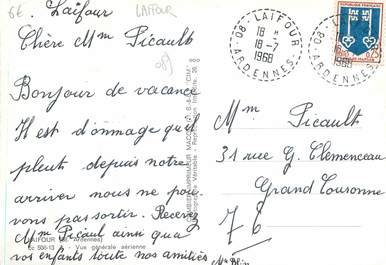 6E Laifour LAIFOUR
Chère Mm Picault 08)
Bonjour de vacance
Il est d'onmage qu'il
pleut depuis notre
arriver nous ne pou
vons pas sortir. Recevez
Mm Picaul ainsi que
vos enfants toute nos amitiées
LAIFOUR (08. Ardennes)
Vue générale aérienne
COMBIER IMPRIMEUR MACON
08 - LAIFOUR
ARDENNES
18 H
18-7
1968
08 - LAIFOUR
ARDENNES
1968
0,25
Mm Picault
31 rue G. Clemenceau
Grand Couronne
76